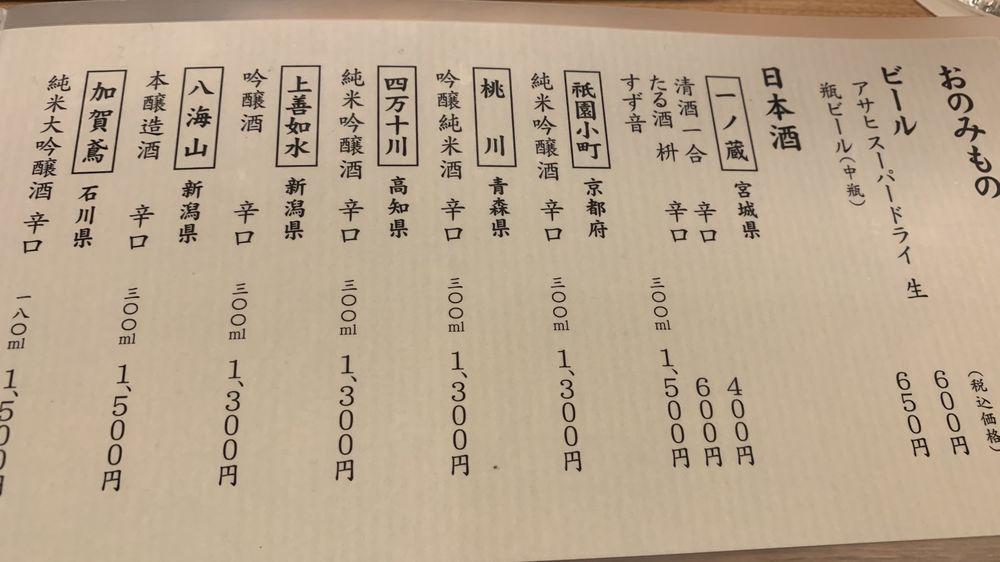 おのみもの
(税込価格)
ビール
アサヒスーパードライ 生 600円
瓶ビール(中瓶) 650円
日本酒
一ノ蔵 宮城県
清酒一合 辛口 400円
たる酒 枡 辛口 600円
すず音 三〇〇ml 1,500円
祇園小町 京都府
純米吟醸酒 辛口 三〇〇ml 1,300円
桃川 青森県
吟醸純米酒 辛口 三〇〇ml 1,300円
四万十川 高知県
純米吟醸酒 辛口 三〇〇ml 1,300円
上善如水 新潟県
吟醸酒 辛口 三〇〇ml 1,300円
八海山 新潟県
本醸造酒 辛口 三〇〇ml 1,500円
加賀鳶 石川県
純米大吟醸酒 辛口 一八〇ml 1,500円